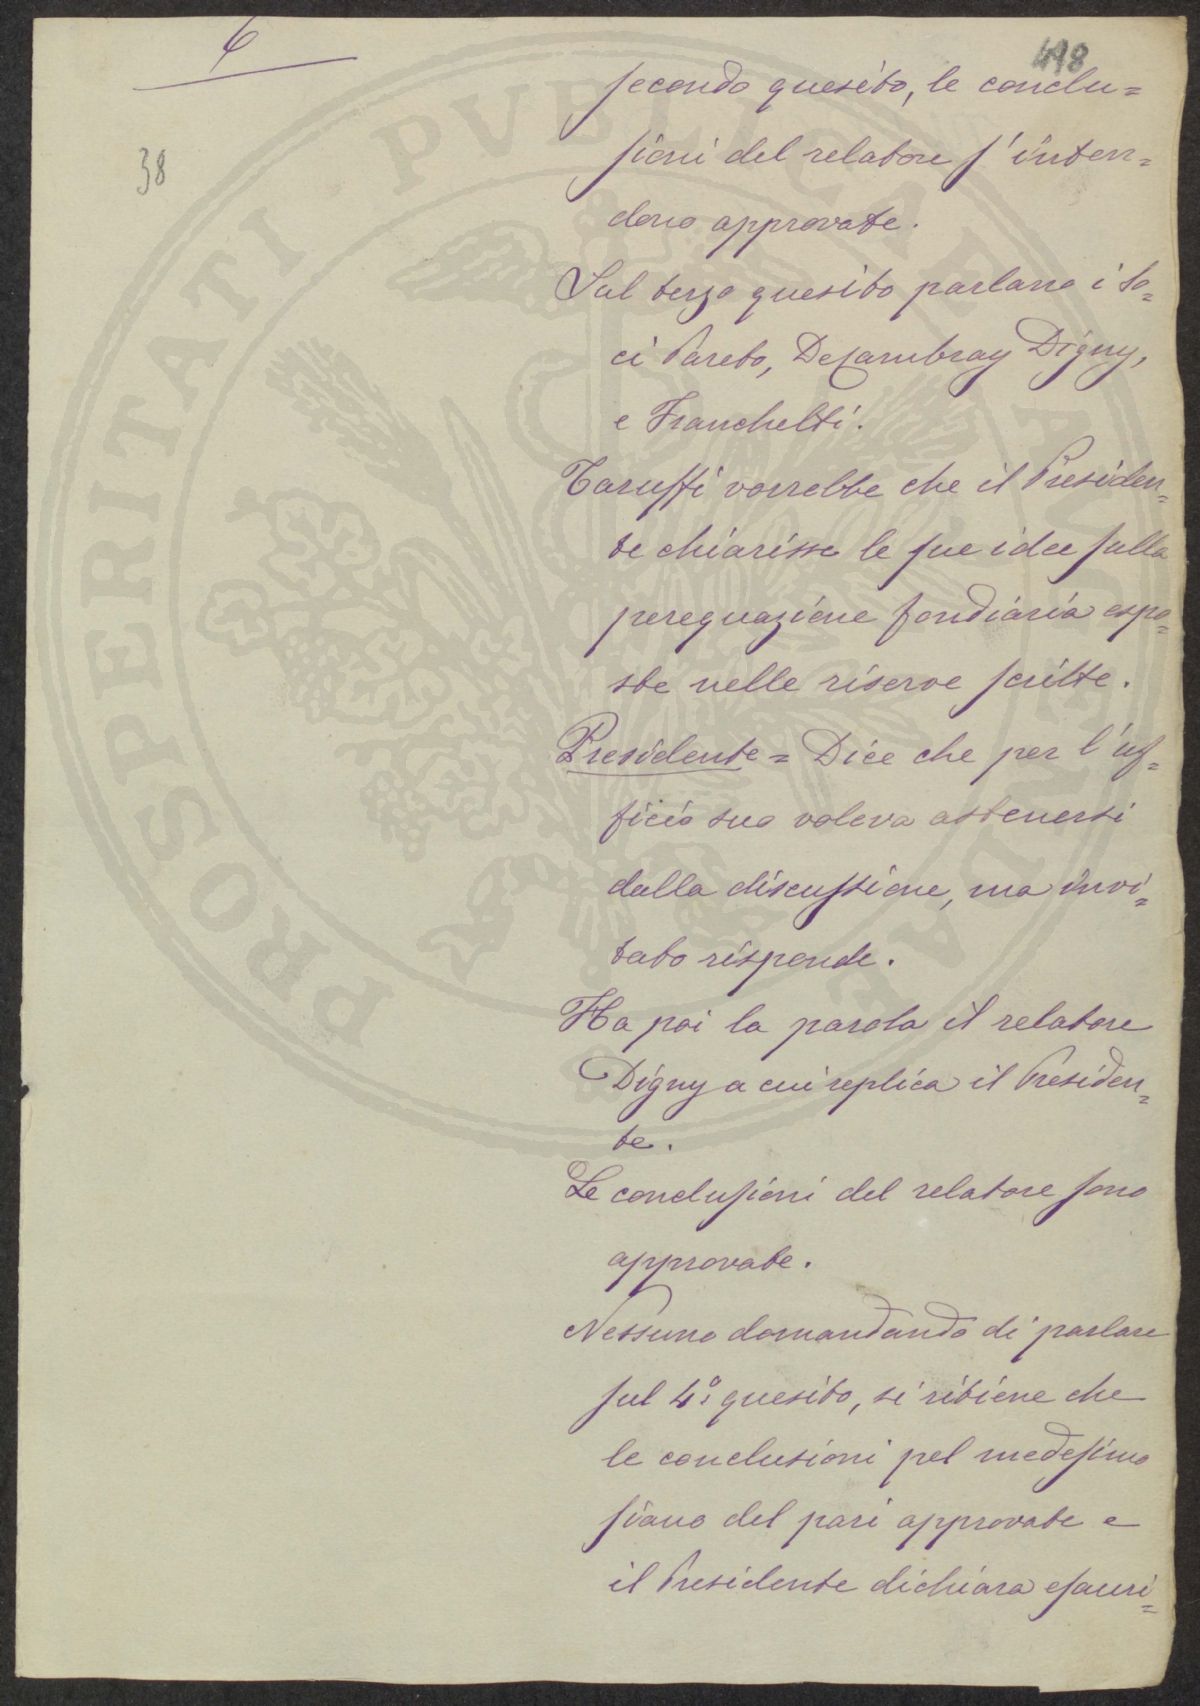 6
498
38
secondo quesito, le conclu=
sioni del relatore s'inten=
dono approvate.
Sul terzo quesito parlano i So=
ci Pareto, DeCambray Digny,
e Franchetti.
Taruffi vorrebbe che il Presiden=
te chiarisse le sue idee sulla
perequazione fondiaria espo=
ste nelle riserve scritte.
Presidente = Dice che per l'uf=
ficio suo voleva astenersi
dalla discussione, ma invi=
tato risponde.
Ha poi la parola il relatore
Digny a cui replica il Presiden=
te.
Le conclusioni del relatore sono
approvate.
Nessuno domandando di parlare
sul 4º quesito, si ritiene che
le conclusioni pel medesimo
siano del pari approvate e
il Presidente dichiara esauri=
PROSPERITATI PUBLICAE AUGENDAE